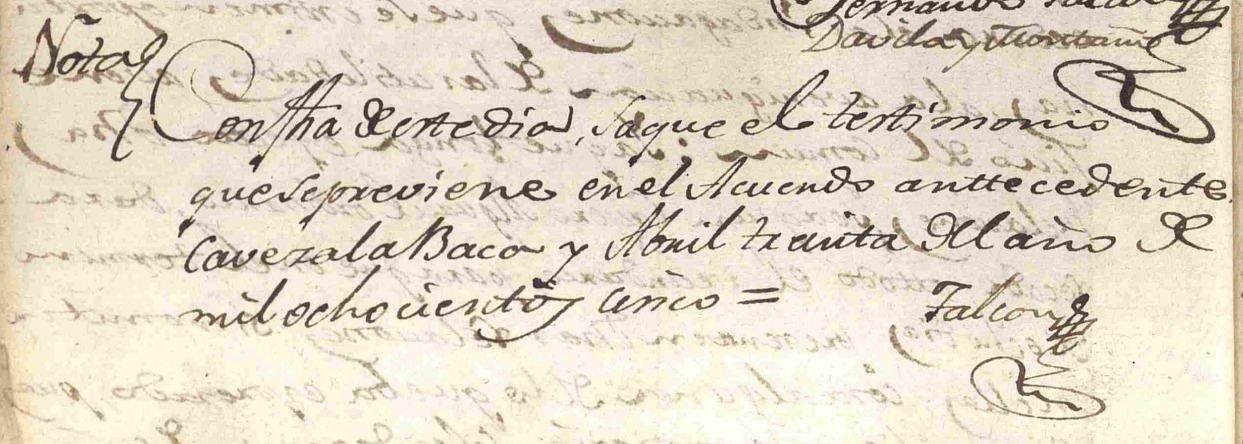 Davila y Montaño
Nota
Con fha de este dia, saque el testimonio
que se previene en el Acuerdo anttecedente.
Caveza la Baca y Abril treinta del año de
mil ochocientos cinco =
Falcon